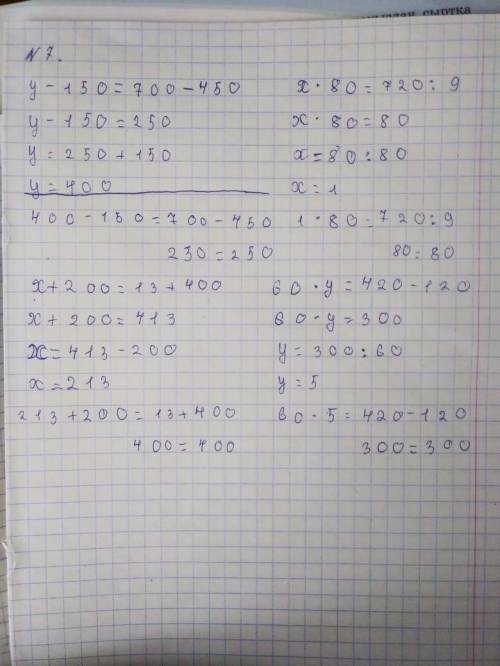 сыртка
N 7.
y - 150 = 700 - 450
y - 150 = 250
y = 250 + 150
y = 400
400 - 150 = 700 - 450
230 = 250
x · 80 = 720 : 9
x · 80 = 80
x = 80 : 80
x = 1
1 · 80 = 720 : 9
80 = 80
x + 200 = 13 + 400
x + 200 = 413
x = 413 - 200
x = 213
213 + 200 = 13 + 400
400 = 400
60 · y = 420 - 120
60 · y = 300
y = 300 : 60
y = 5
60 · 5 = 420 - 120
300 = 300